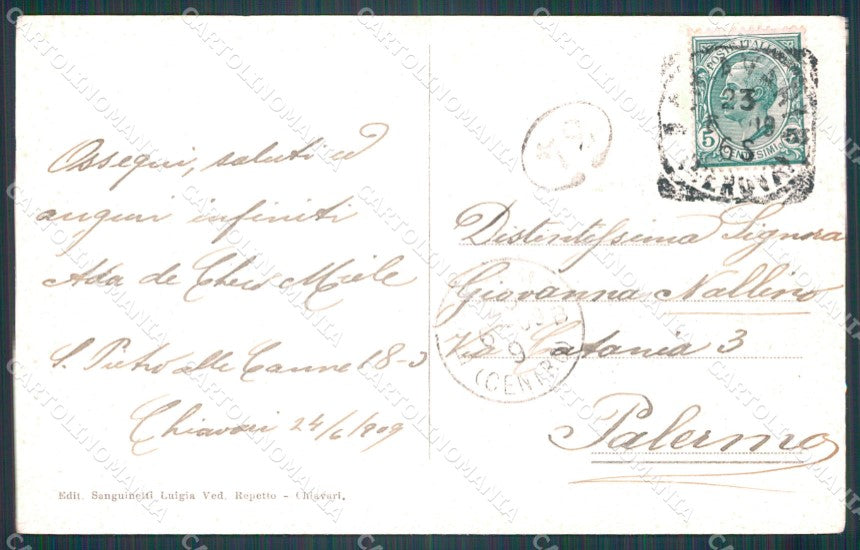 Ossequi, saluti ed
auguri infiniti
Ada de Miele
S. Pietro alle Canne 18-3
Chiavari 24/6/909
Edit. Sanguineti Luigia Ved. Repetto - Chiavari.
POSTE ITALIANE
5 CENTESIMI 5
23
6 S
(GENOVA)
Distintissima Signora
Giovanna Nallino
Via Catania 3
Palermo
(CENTRO)
CARTOLINOMANIA